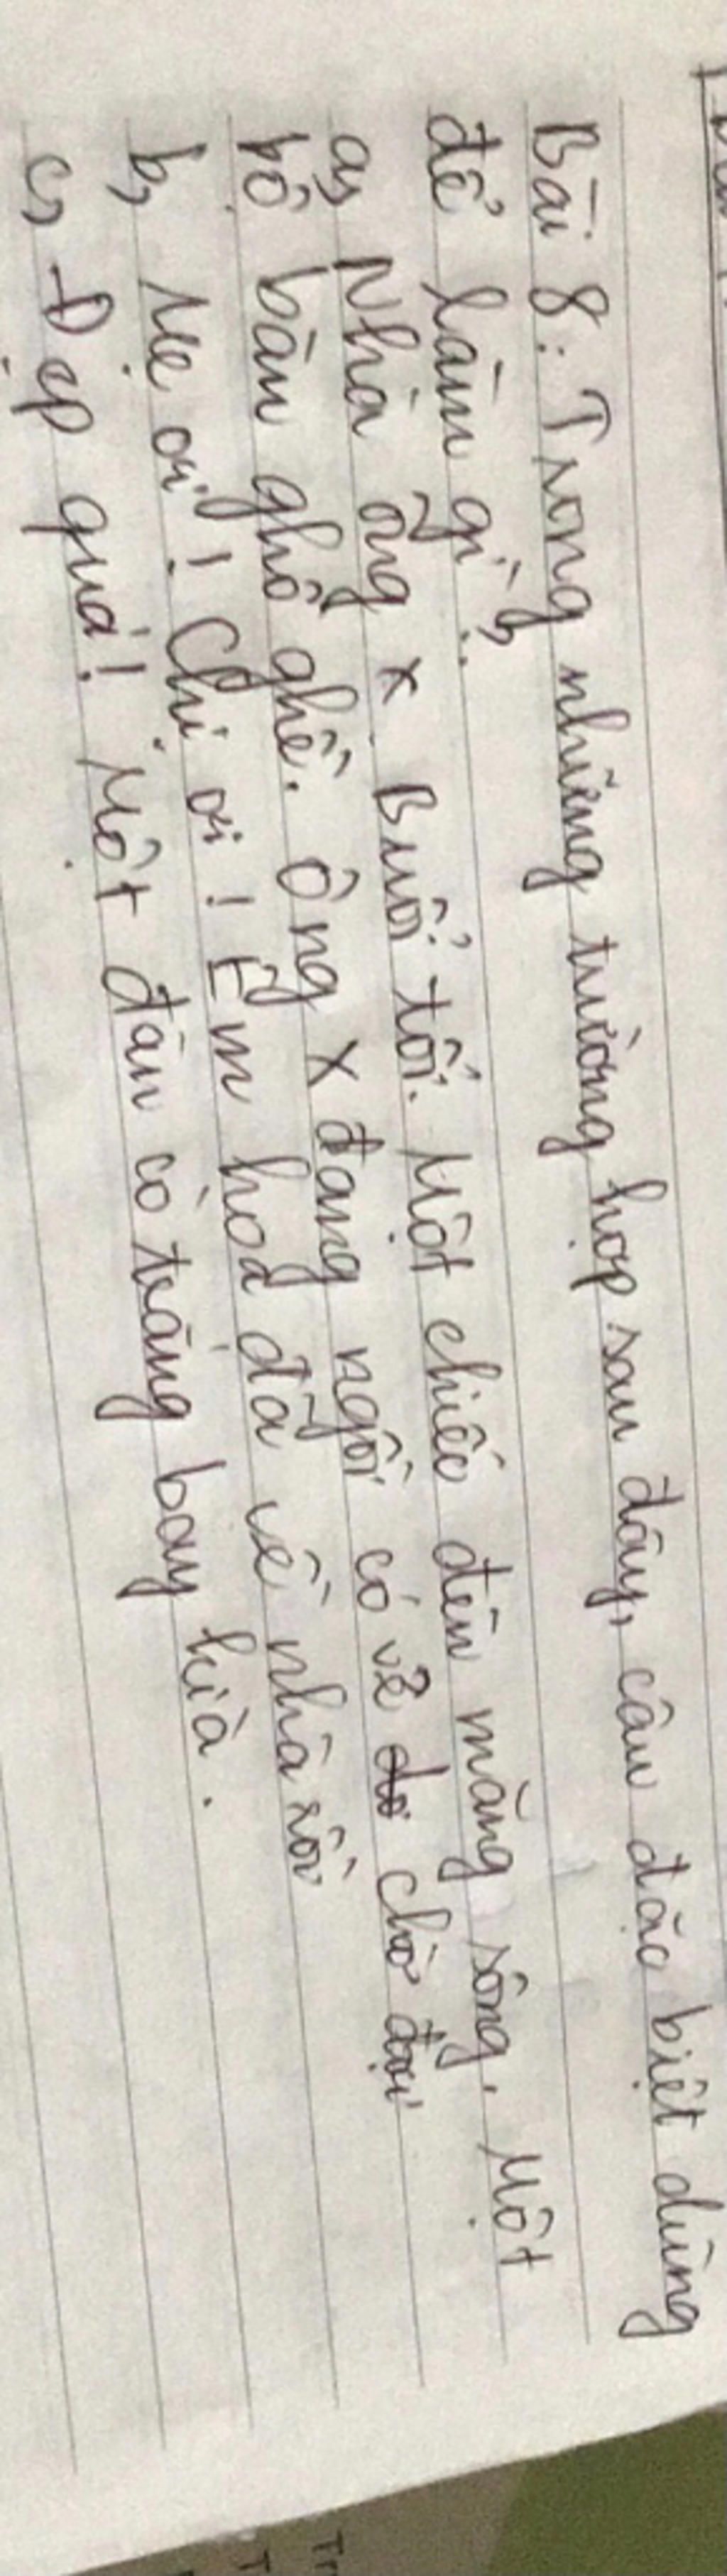 Bài 8: Trong những trường hợp sau đây, câu đặc biệt dùng
để làm gì:
a, Nhà ông X. Buổi tối. Một chiếc đèn măng sông. Một
bộ bàn ghế. Ông X đang ngồi có vẻ chờ đợi
b, Mẹ ơi! Chị ơi! Em hoà đã về nhà rồi
c, Đẹp quá! Một đàn cò trắng bay kìa.